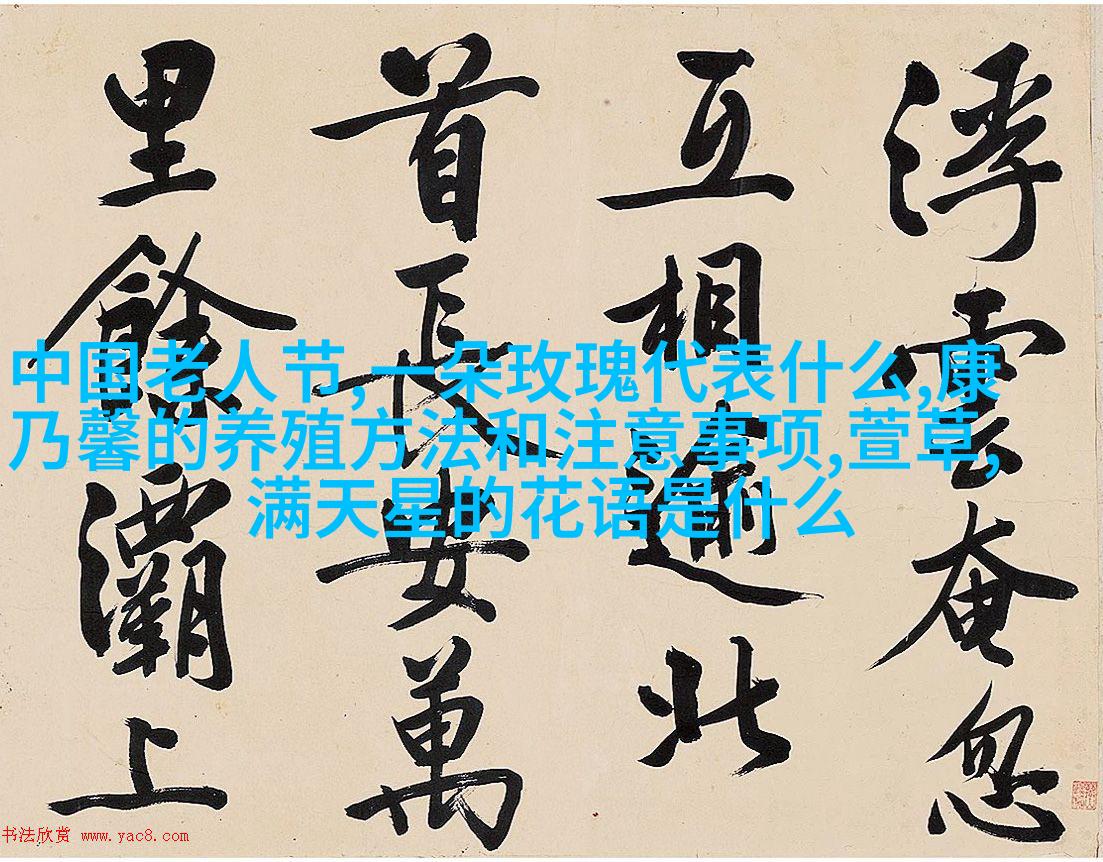 浮雲奄忽
互相逾北
首長安萬
里餘灞上
中国老人节,一朵玫瑰代表什么,康
乃馨的养殖方法和注意事项,萱草,
满天星的花语是什么
书法欣赏 www.yac8.com